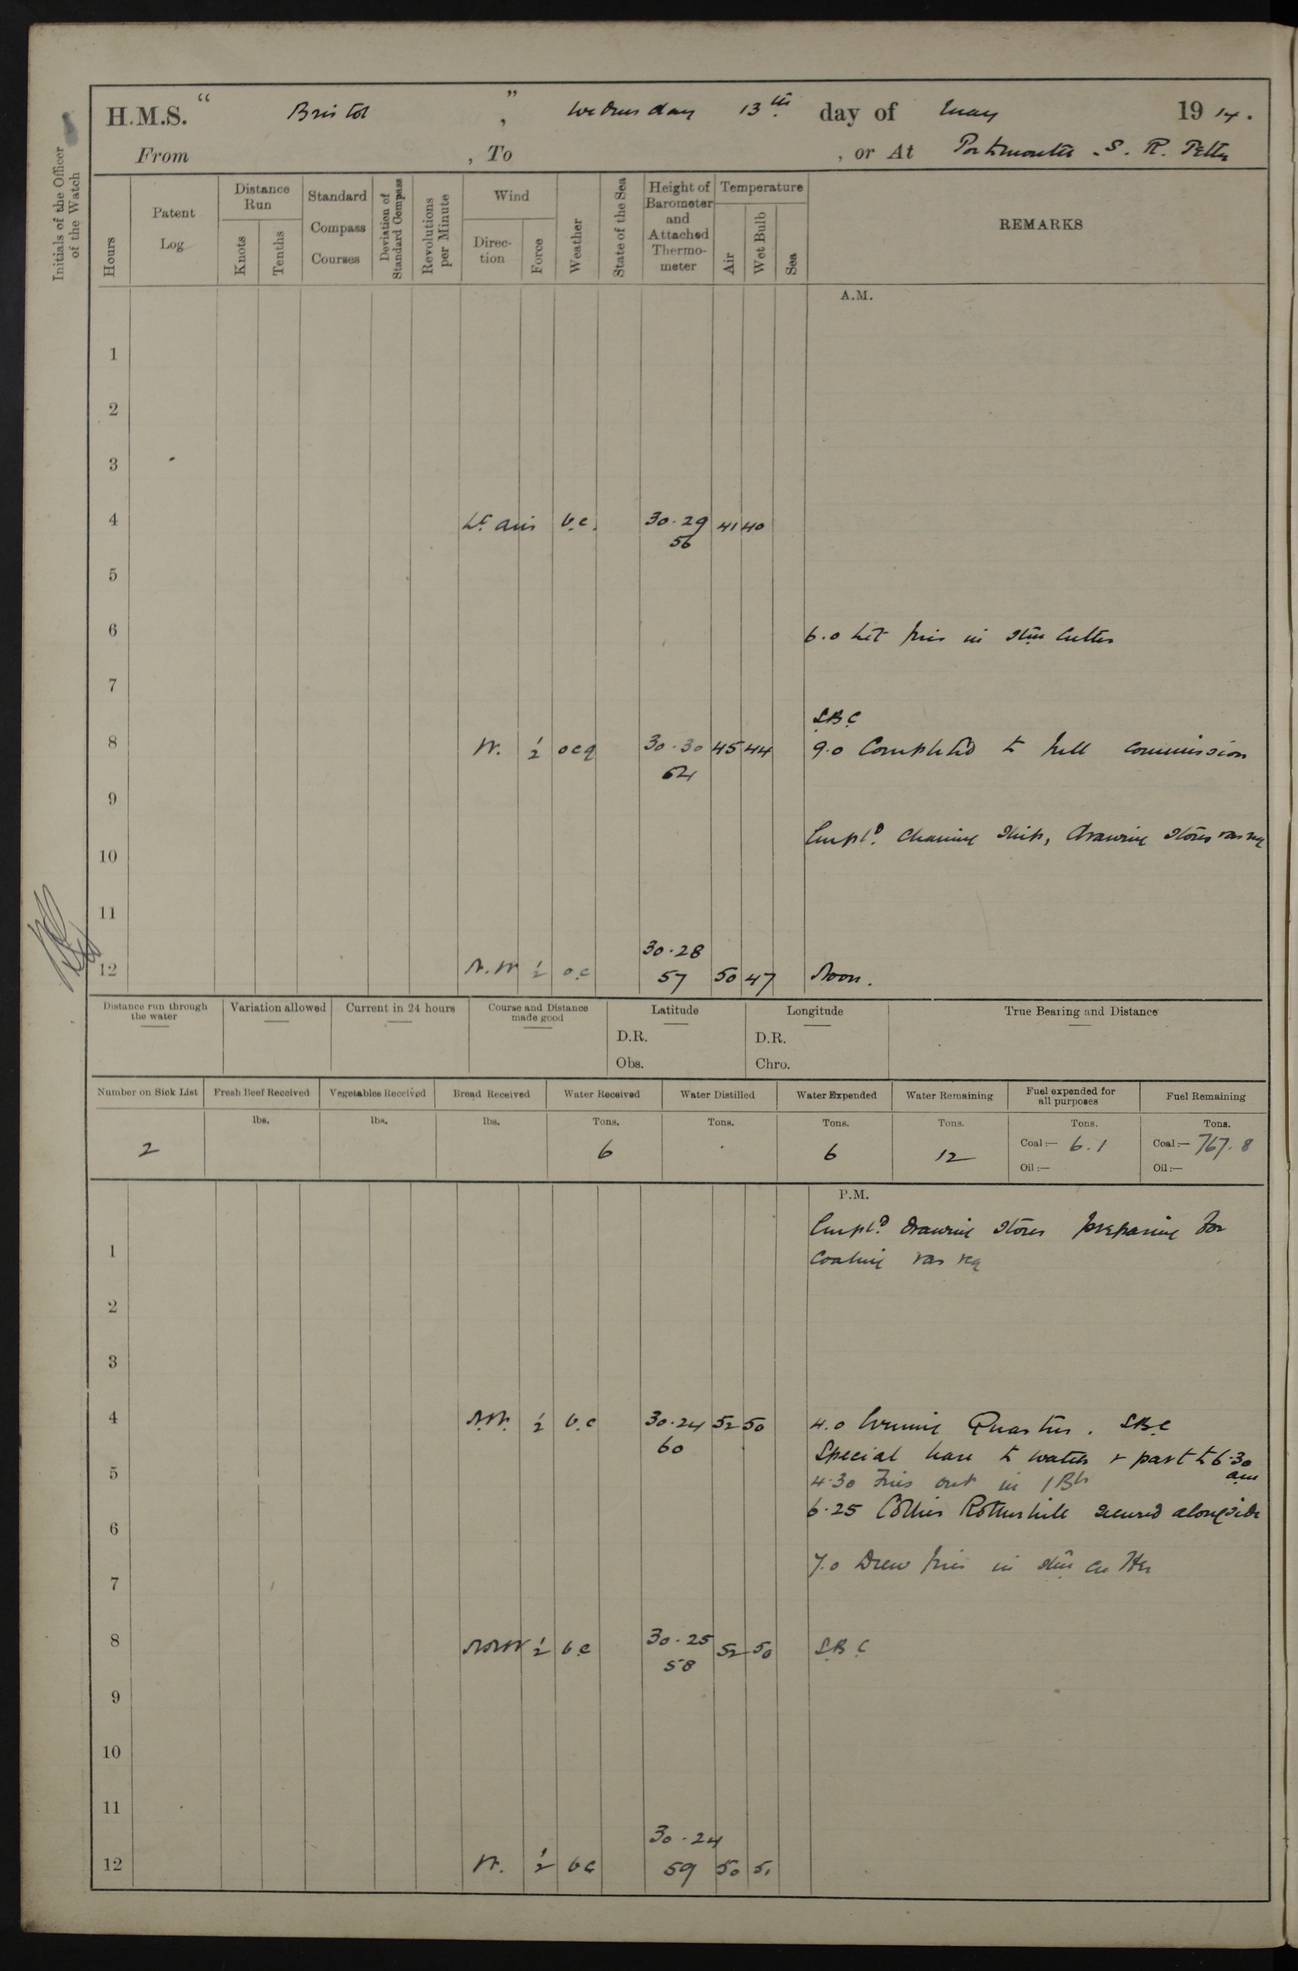 H.M.S. " Bristol ", Wednesday 13th day of May 1914.
From , To , or At Portsmouth . S. R. Jetty
Initials of the Officer of the Watch
Hours
Patent Log
Distance Run
Knots
Tenths
Standard Compass Courses
Deviation of Standard Compass
Revolutions per Minute
Wind
Direc-tion
Force
Weather
State of the Sea
Height of Barometer and Attached Thermo-meter
Temperature
Air
Wet Bulb
Sea
REMARKS
A.M.
1
2
3
4 Lt airs b.c. 30.29 41 40
56
5
6 6.0 Lit fires in stm Cutter
7
S.B.C
8 W. 1/2 ocq 30.30 45 44 9.0 Completed to full commission
64
9
Empld. cleaning ship, drawing stores & as req
10
11
30.28
12 N.W 1/2 o.c 57 50 47 Noon.
Distance run through the water
Variation allowed
Current in 24 hours
Course and Distance made good
Latitude
D.R.
Obs.
Longitude
D.R.
Chro.
True Bearing and Distance
Number on Sick List
2
Fresh Beef Received
lbs.
Vegetables Received
lbs.
Bread Received
lbs.
Water Received
Tons.
6
Water Distilled
Tons.
Water Expended
Tons.
6
Water Remaining
Tons.
12
Fuel expended for all purposes
Tons.
Coal:— 6.1
Oil:—
Fuel Remaining
Tons.
Coal:— 767.8
Oil:—
P.M.
Empld. drawing stores preparing for
1 coaling & as req
2
3
4 N.W. 1/2 b.c 30.24 52 50 4.0 Evening Quarters. S.B.C
60 Special leave to watch & part to 6.30 am
5 4.30 Fires out in 1 Blr
6.25 Collier Rotherhill secured alongside
6
7.0 Drew fires in stm cutter
7
8 NNW 1/2 b.c 30.25 52 50 S.B.C
58
9
10
11
30.24
12 W. 1/2 bc 59 50 51